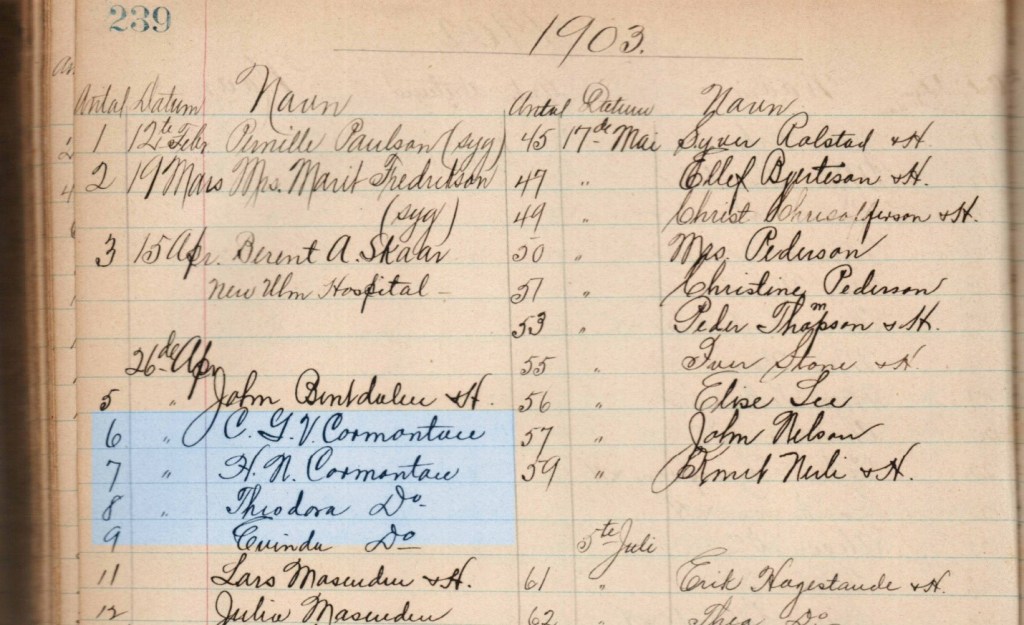 239
1903.
Antal Datum Navn
1 12te Febr Pernille Paulson (syg)
2 19 Mars Mrs. Marit Fredrikson
(syg)
3 15 Apr. Berent A. Skaar
New Ulm Hospital -
26de Apr
5 " John Bentdalen & H.
6 " C. G. V. Cormontan
7 " H. N. Cormontan
8 " Theodora Do.
9 Do
11 Lars & H.
12 Julia
Antal Datum Navn
45 17de Mai Syver Rolstad & H.
47 " Ellef & H.
49 " Christ & H.
50 " Mrs. Pederson
51 " Christine Pederson
53 " Peder Thompson & H.
55 " Iver Stone & H.
56 " Elise Lee
57 " John Nelson
59 " Knut & H.
5te Juli
61 " Erik & H.
62 " Thea Do